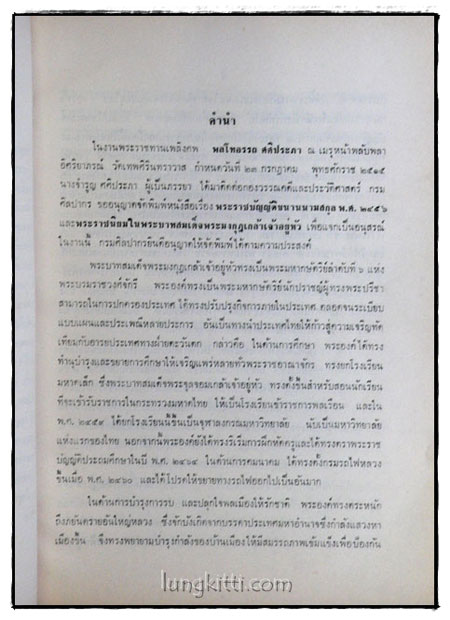 คำนำ
ในงานพระราชทานเพลิงศพ พลโทอรรถ ศศิประภา ณ เมรุหน้าพลับพลา
อิศริยาภรณ์ วัดเทพศิรินทราวาส กำหนดวันที่ ๒๓ กรกฎาคม พุทธศักราช ๒๕๑๕
นางจำรูญ ศศิประภา ผู้เป็นภรรยา ได้มาติดต่อกองวรรณคดีและประวัติศาสตร์ กรม
ศิลปากร ขออนุญาตจัดพิมพ์หนังสือเรื่อง พระราชบัญญัติขนานนามสกุล พ.ศ. ๒๔๕๖
และพระราชนิยมในพระบาทสมเด็จพระมงกุฎเกล้าเจ้าอยู่หัว เพื่อแจกเป็นอนุสรณ์
ในงานนี้ กรมศิลปากรยินดีอนุญาตให้จัดพิมพ์ได้ตามความประสงค์
พระบาทสมเด็จพระมงกุฎเกล้าเจ้าอยู่หัวทรงเป็นพระมหากษัตริย์ลำดับที่ ๖ แห่ง
พระบรมราชวงศ์จักรี พระองค์ทรงเป็นพระมหากษัตริย์นักปราชญ์ผู้ทรงพระปรีชา
สามารถในการปกครองประเทศ ได้ทรงปรับปรุงกิจการภายในประเทศ ตลอดจนระเบียบ
แบบแผนและประเพณีหลายประการ อันเป็นทางนำประเทศไทยให้ก้าวสู่ความเจริญทัด
เทียมกับอารยประเทศทางฝ่ายตะวันตก กล่าวคือ ในด้านการศึกษา พระองค์ได้ทรง
ทำนุบำรุงและขยายการศึกษาให้เจริญแพร่หลายทั่วพระราชอาณาจักร ทรงยกโรงเรียน
มหาดเล็ก ซึ่งพระบาทสมเด็จพระจุลจอมเกล้าเจ้าอยู่หัว ทรงตั้งขึ้นสำหรับสอนนักเรียน
ที่จะเข้ารับราชการในกระทรวงมหาดไทย ให้เป็นโรงเรียนข้าราชการพลเรือน และใน
พ.ศ. ๒๔๕๙ ได้ยกโรงเรียนนี้ขึ้นเป็นจุฬาลงกรณมหาวิทยาลัย นับเป็นมหาวิทยาลัย
แห่งแรกของไทย นอกจากนี้พระองค์ยังได้ทรงริเริ่มการฝึกหัดครูและได้ทรงตราพระราช
บัญญัติประถมศึกษาในปี พ.ศ. ๒๔๖๔ ในด้านการคมนาคม ได้ทรงตั้งกรมรถไฟหลวง
ขึ้นเมื่อ พ.ศ. ๒๔๖๐ และได้โปรดให้ขยายทางรถไฟออกไปเป็นอันมาก
ในด้านการบำรุงการรบ และปลุกใจพลเมืองให้รักชาติ พระองค์ทรงตระหนัก
ถึงภยันตรายอันใหญ่หลวง ซึ่งจักบังเกิดจากบรรดาประเทศมหาอำนาจซึ่งกำลังแสวงหา
เมืองขึ้น จึงทรงพยายามบำรุงกำลังของบ้านเมืองให้มีสมรรถภาพเข้มแข็งเพื่อป้องกัน
lungkitti.com